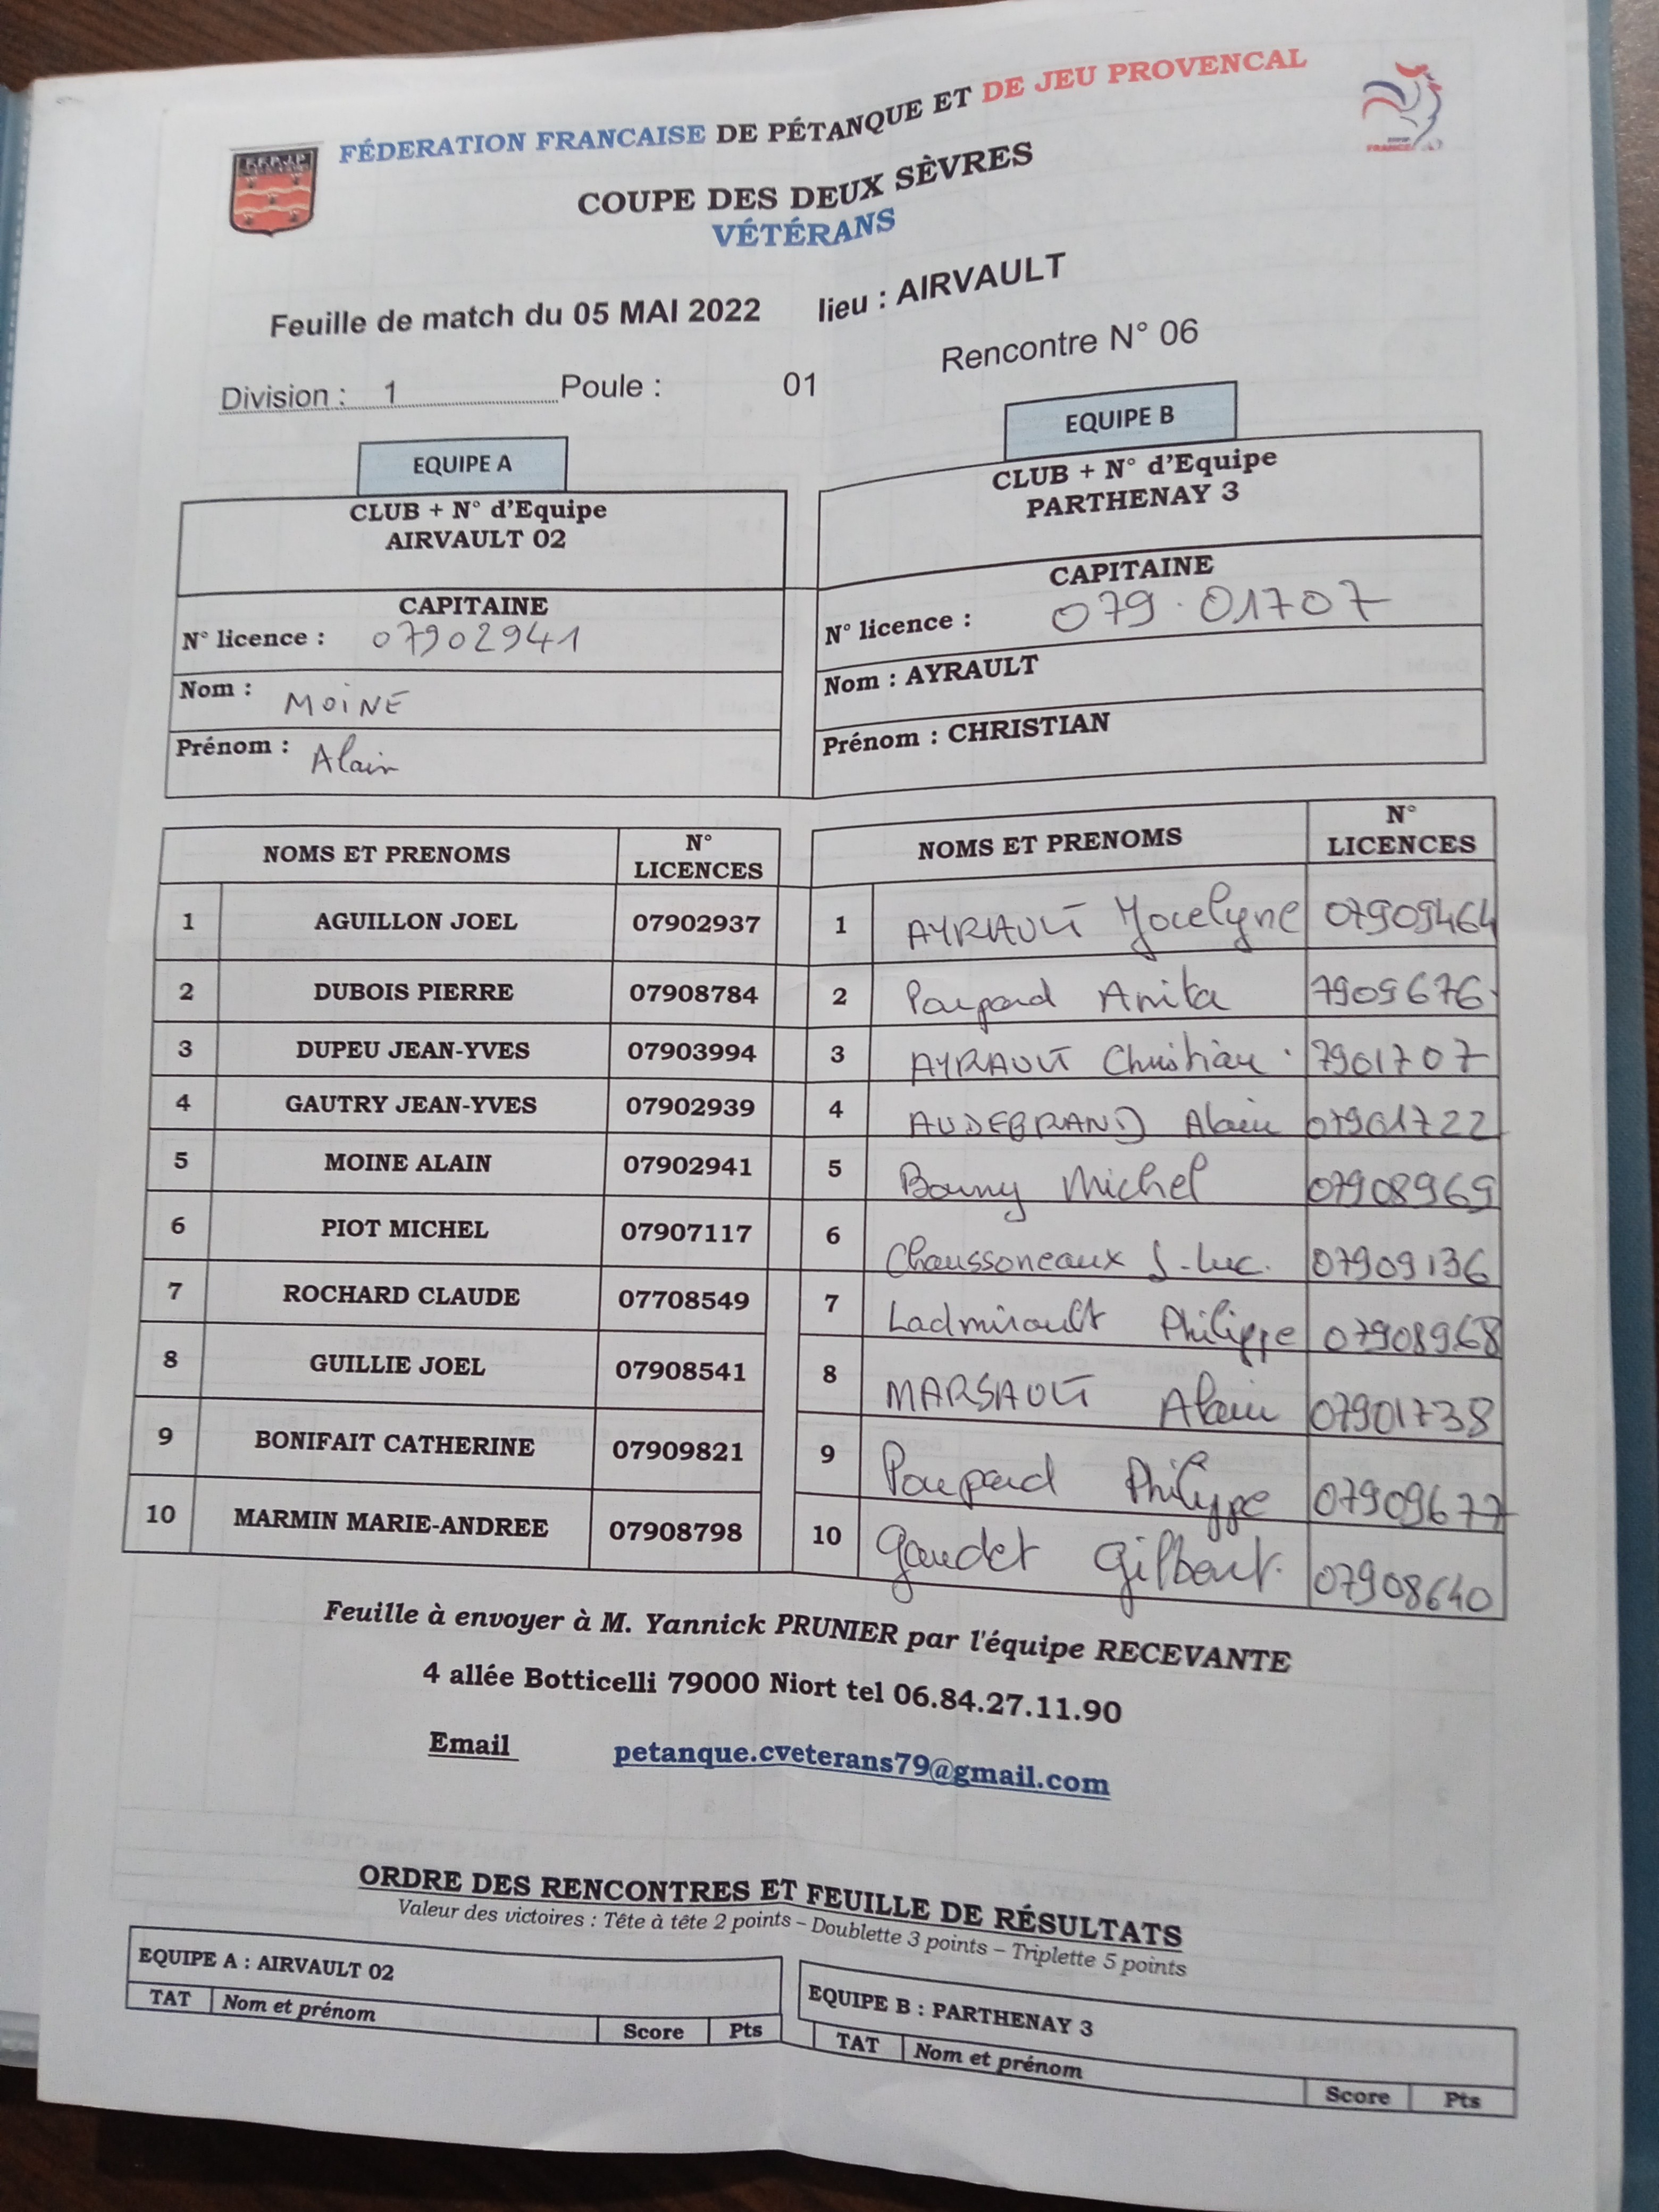 FÉDERATION FRANCAISE DE PÉTANQUE ET DE JEU PROVENCAL
COUPE DES DEUX SÈVRES
VÉTÉRANS
Feuille de match du 05 MAI 2022 lieu : AIRVAULT
Rencontre N° 06
Division : 1 Poule : 01
EQUIPE A
CLUB + N° d'Equipe
AIRVAULT 02
CAPITAINE
N° licence : 07902941
Nom : MOINE
Prénom : Alain
EQUIPE B
CLUB + N° d'Equipe
PARTHENAY 3
CAPITAINE
N° licence : 079.01707
Nom : AYRAULT
Prénom : CHRISTIAN
NOMS ET PRENOMS N° LICENCES
1 AGUILLON JOEL 07902937
2 DUBOIS PIERRE 07908784
3 DUPEU JEAN-YVES 07903994
4 GAUTRY JEAN-YVES 07902939
5 MOINE ALAIN 07902941
6 PIOT MICHEL 07907117
7 ROCHARD CLAUDE 07708549
8 GUILLIE JOEL 07908541
9 BONIFAIT CATHERINE 07909821
10 MARMIN MARIE-ANDREE 07908798
NOMS ET PRENOMS N° LICENCES
1 AYRAULT Jocelyne 07909464
2 Poupard Anita 7909676
3 AYRAULT Christian 7901707
4 AUDEBRAND Alain 07901722
5 Michel 07908969
6 Chaussoneaux J-Luc. 07909136
7 Ladmirault Philippe 07908968
8 MARSAULT Alain 07901738
9 Poupard Philippe 07909677
10 Gaudet Gilbert 07908640
Feuille à envoyer à M. Yannick PRUNIER par l'équipe RECEVANTE
4 allée Botticelli 79000 Niort tel 06.84.27.11.90
Email petanque.cveterans79@gmail.com
ORDRE DES RENCONTRES ET FEUILLE DE RÉSULTATS
Valeur des victoires : Tête à tête 2 points – Doublette 3 points – Triplette 5 points
EQUIPE A : AIRVAULT 02
TAT Nom et prénom Score Pts
EQUIPE B : PARTHENAY 3
TAT Nom et prénom Score Pts